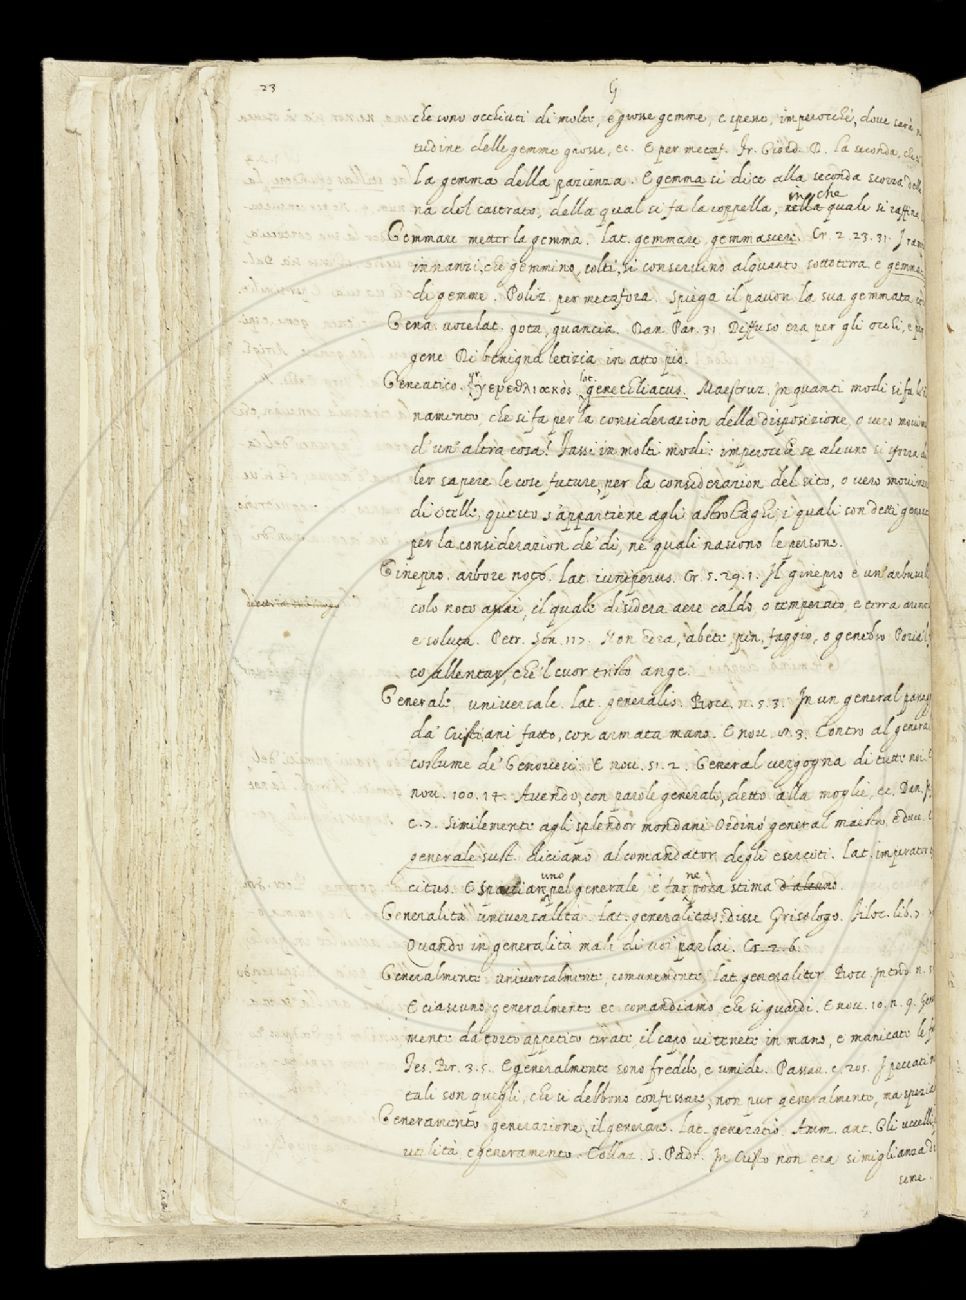 23
G
che sono occhiuti di molte, e grosse gemme, e spesse, imperocchè, dove sarà
tudine delle gemme grosse, ec. E per metaf. Fr. Giord. D. la seconda, che
la gemma della pazienza. E gemma si dice alla seconda scorza
na del castrato, della qual si fa la coppella, nella in che quale si raffina
Gemmare metter la gemma. Lat. gemmare, gemmascere. Cr. 2. 23. 31. I rami
innanzi, che gemmino, colti, si conservino alquanto sotterra. e gemma
di gemme. Poliz. per metafora. Spiega il pavon la sua gemmata
Gena voce lat. gota, guancia. Dan. Par. 31. Diffuso era per gli occhi, e per
gene Di benigna letizia in atto pio.
Geneatico. gr. γενεθλιακὸς lat. genethliacus. Maestruz. In quanti modi si fa
namento, che si fa per la considerazion della disposizione, o vero movim
d'un'altra cosa? Fassi in molti modi: imperocchè se alcuno si sforza
ler sapere le cose future, per la considerazion del sito, o vero movimen
di stelle, questo s'appartiene agli astrolaghi, i quali son detti genea
per la considerazion de' dì, ne' quali nascono le persone.
Ginepro. arbore noto. Lat. iuniperus. Cr. 5. 29. 1. Il ginepro è un' arbuscel
colo noto assai, il quale disidera aere caldo, o temperato, e terra arenosa
e soluta. Petr. Son. 117. Non edra, abete, pin, faggio, o genebro Poria 'l
co allentar, che 'l cuor tristo ange.
Generale, universale. Lat. generalis. Bocc. n. 5. 3. In un general passag
da' Cristiani fatto, con armata mano. E nov. 3. Contro al general
costume de' Genovesi. E nov. 51. 2. General vergogna di tutte noi.
nov. 100. 14. Avendo, con parole generali, detto alla moglie, ec. Dan.
c. 7. Similemente agli splendor mondani Ordinò general ministra, e duce.
generale sust. diciamo al comandator degli eserciti. Lat. imperator
citus. E per uno generale e far ne poca stima d'alcuno.
Generalità universalità. Lat. generalitas. disse Grisologo. filoc. lib. 7.
Quando in generalità mali di voi parlai. Cr. 2. 6.
Generalmente universalmente, comunemente. lat. generaliter Bocc. Introd. n.
E ciascuno generalmente ec. comandiamo, che si guardi. E nov. 10. n. 9. Gene
mente da torto appetito tirate, il capo vi tenete in mano, e manicate le
Tes. Br. 3. 5. E generalmente sono fredde, e umide. Passav. c. 205. I peccati
tali son quegli, che si debbono confessare, non pur generalmente, ma
Generamento generazione, il generare. Lat. generatio. Amm. ant. Gli uccelli
utilità e generamento. Collaz. S. Pad. In Cristo non era simiglianza di
seme.